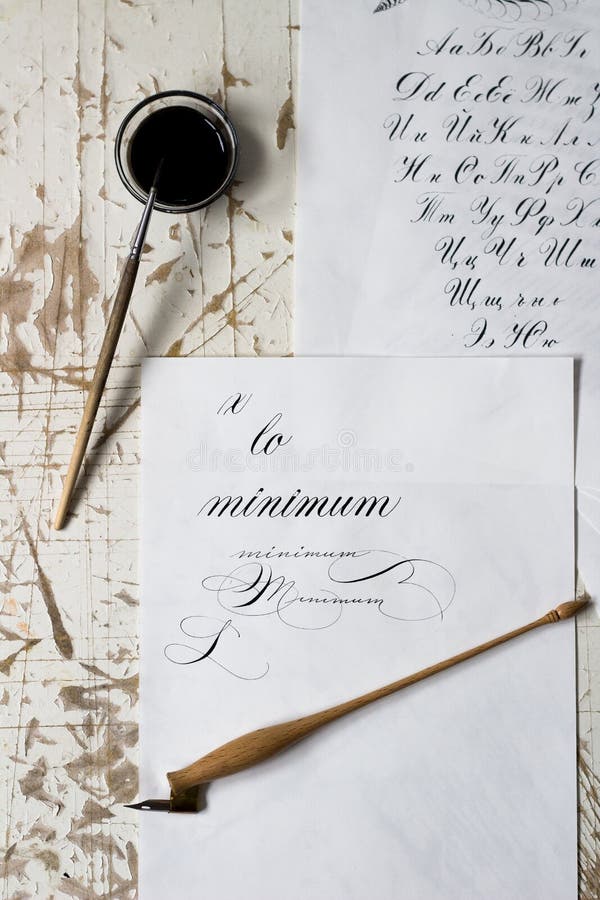 Аа Бб Вв Гг
Dd Ее Ёё Жж Зз
Ии Йй Кк Лл
Нн Оо Пп Рр
Тт Уу Фф Хх
Цц Чч Шш
Щщ ъ ы ь
Ээ Юю
x
lo
minimum
minimum
Minimum
L
dreamstime